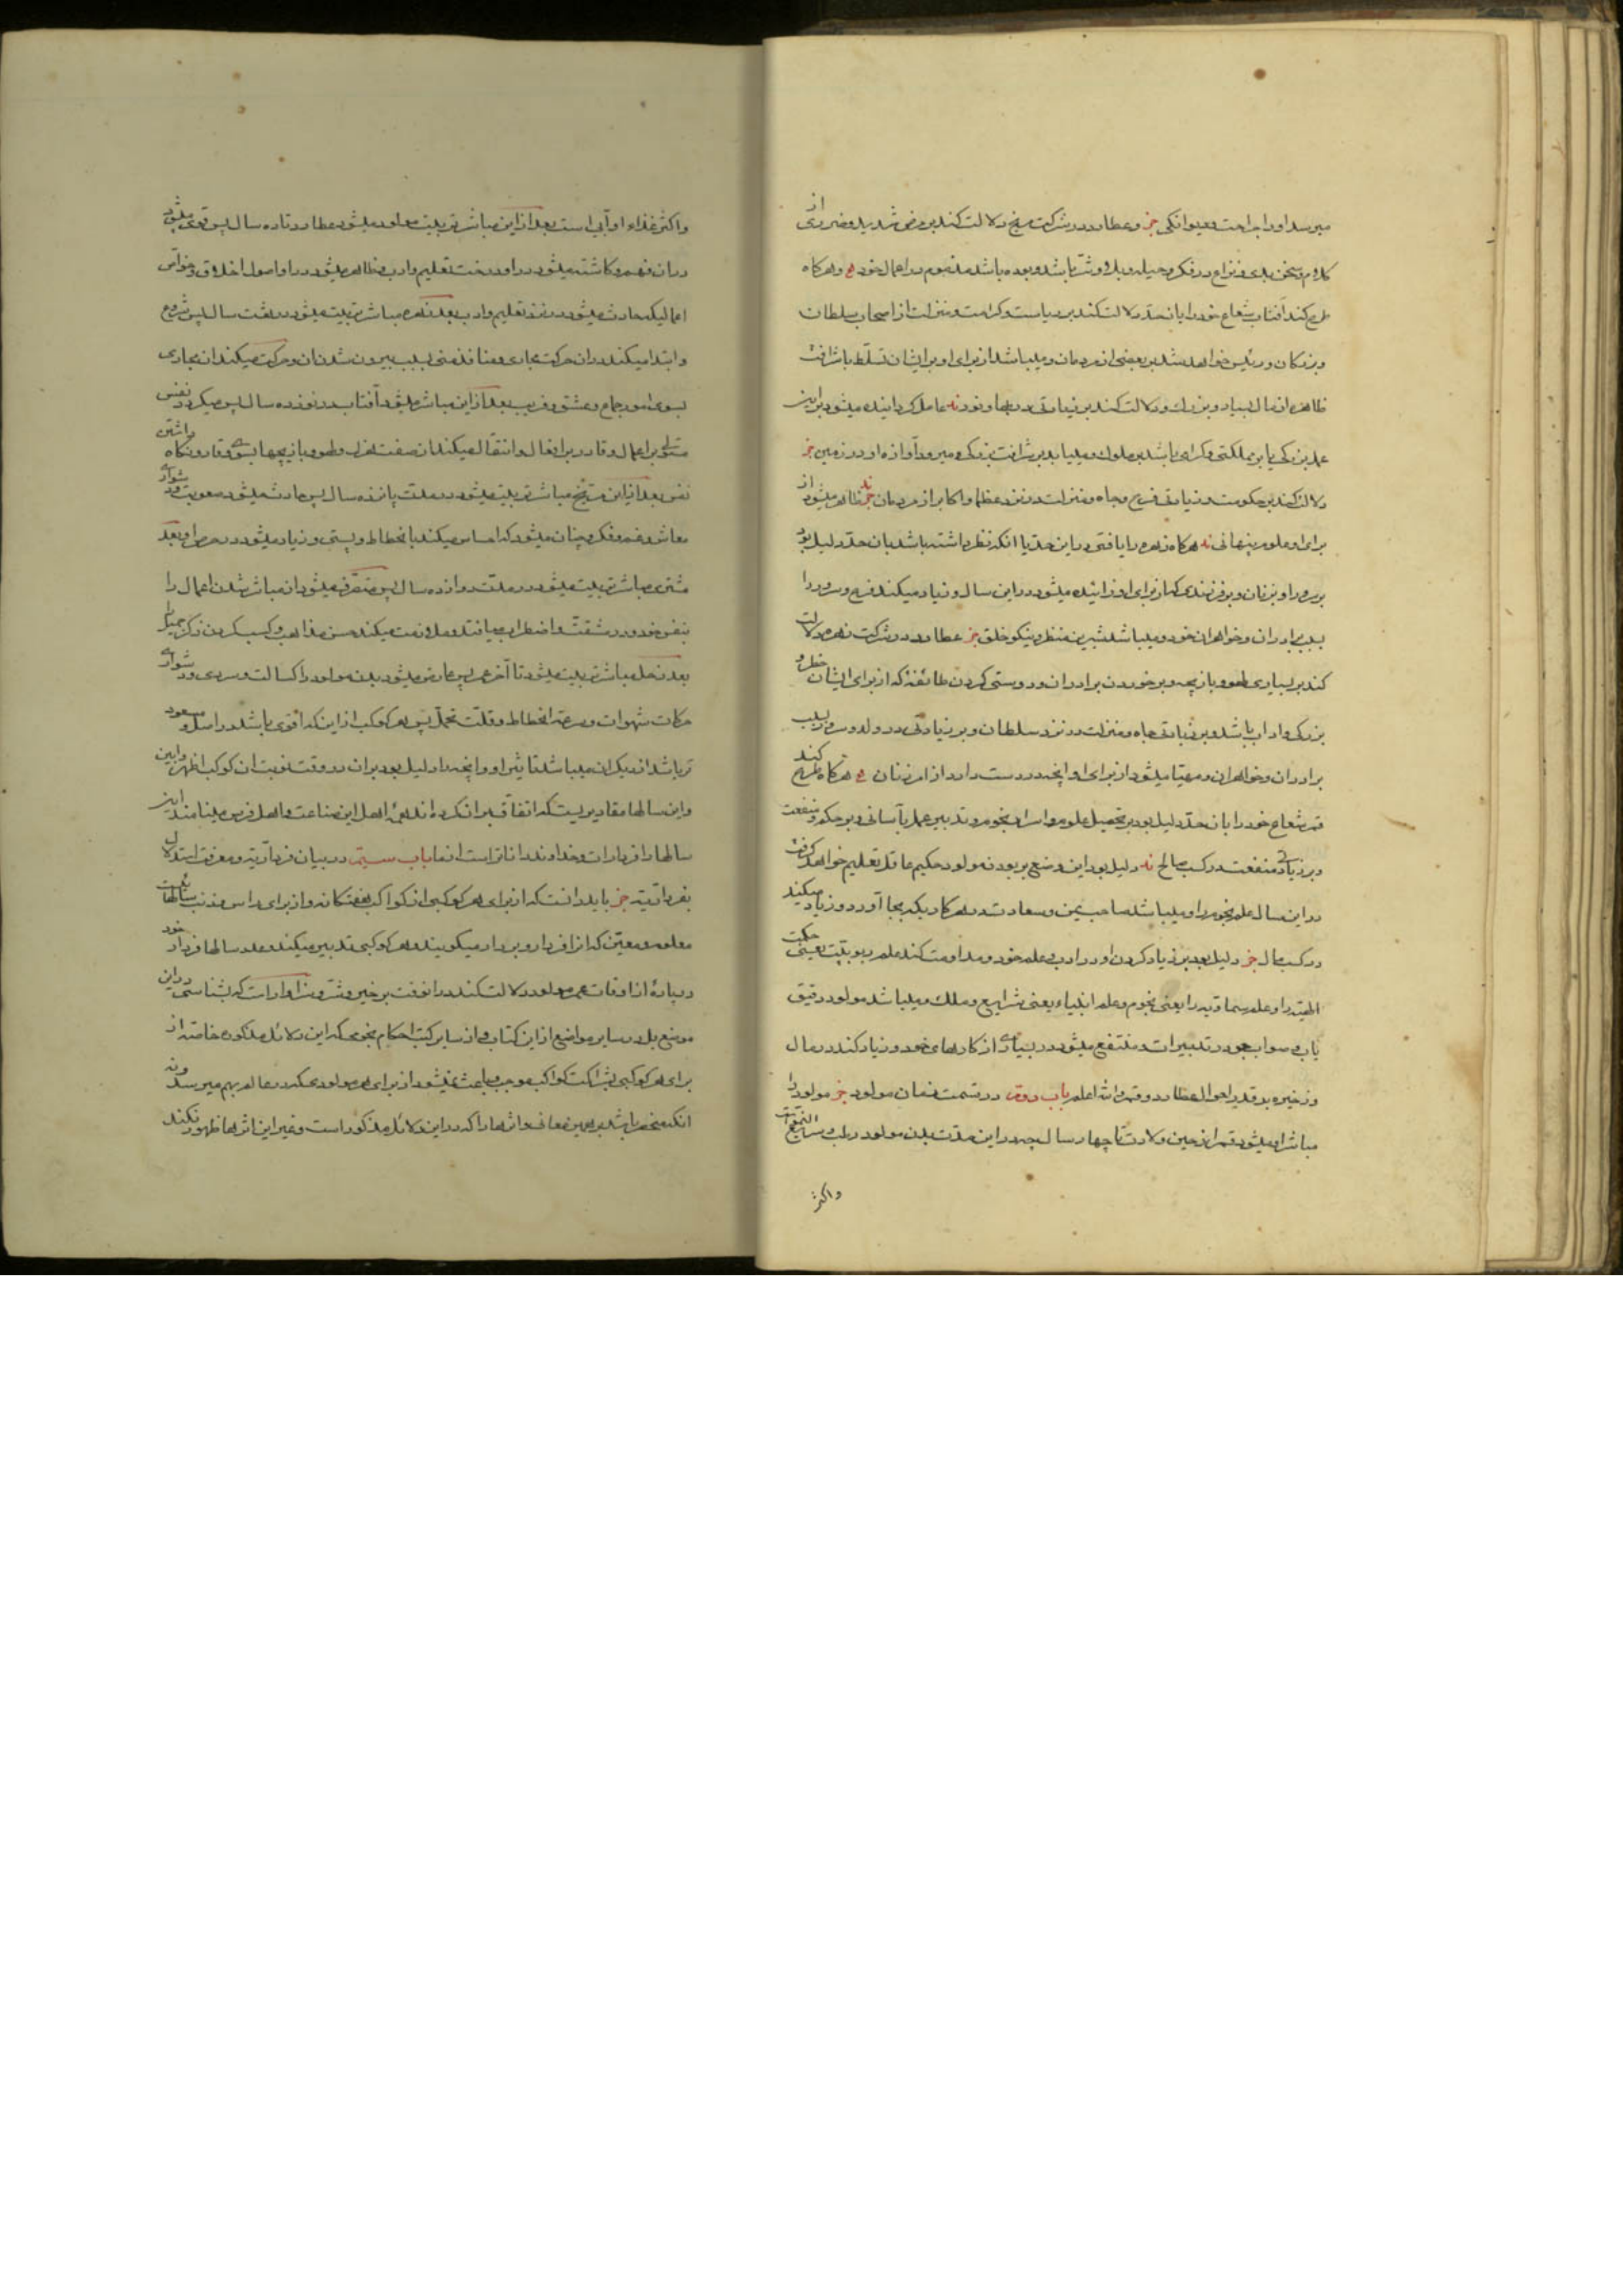 میرسد او را جراحت و دیوانکی جز و عطارد در شرکت مریخ دلالت کند بر مرض شدید و ضرری از
کلام و سخن بدی و نزاع در فکر و حیله و بد و شر باشد و بوده باشد مذموم در اعمال خود و هرکاه
طرح کند آفتاب شعاع خود را بان حد دلالت کند بر ریاست و کرامت و منزلت از اصحاب سلطان
و بزرکان و رئیس خواهد شد بر بعضی از مردمان و میباشد از برای او بر ایشان تسلط با شرافت
ظاهر از مال بسیار و بزرك و دلالت کند بر زیادتی در بها و نور نه عامل کردانیده میشود بر این
عمل بزرکی یا بر مملکتی و کرامی باشد بر ملوك و میباید بر شرافت بزرك و میرود آوازه او در زمین جز
دلالت کند بر حکومت و زیادتی فرح و جاه و منزلت در نزد عظما و اکابر از مردمان جز نه ظاهر میشود از
برای او علوم پنهانی نه هرکاه زهره را یافتی در این حد یا آنکه نظر داشته باشد بان حد دلیل بود
بر سرور او بزنان و بر فرزندی که از برای او زائیده میشود در این سال و زیاد میکند فرح و سرور را
بسبب برادران و خواهران خود و میباشد شیرین منظر و نیکو خلق جز عطارد در شرکت زهره دلالت
کند بر بسیاری لهو و بازیچه و بر خوردن برادران و دوستی کردن طائفه که از برای ایشان خطر و
بزرکی و اداب باشد و بر زیادتی جاه و منزلت در نزد سلطان و بر زیادتی در ولد و سرور بسبب
برادران و خواهران و مهیا میشود از برای او آنچه دوست دارد از امر زنان هرکاه طرح کند
قمر شعاع خود را بان حد دلیل بود بر تحصیل علوم و اسرار نجوم و تدبیر عمل بآسانی و بر حکم و منفعت
و بر زیادتی منفعت در کسب صالح نه دلیل بود این وضع بر بودن مولود حکیم عاقل تعلیم خواهد کرفت
در این سال علم نجوم را و میباشد صاحب یمن و سعادت در هر کار دیکر بجا آورد و زیاد میکند
در کسب مال جز دلیل بود بر زیاد کردن او در ادب و علم خود و مداومت کند علم ربوبیت یعنی حکمت
الهیه را و علم سماویه را یعنی نجوم و علم انبیاء یعنی شرایع و ملك و میباشد مولود دقیق
یاب و صواب جو در تدبیرات و منتفع میشود در بسیاری از کارهای خود و زیاد کند در مال
و ذخیره بر قدر احوال عطارد و قمر والله اعلم باب دوم در قسمت زمان مولود جز مولود را
مباشر او میشود قمر از حین ولادت تا چهار سال چه در این مدت بدن مولود رطب و سریع النمو است
و اکثر
و اکثر غذاء او آبی است بعد از این مباشر تربیت مولود میشود عطارد تا ده سال پس قوی میشود
در ان فهم و کاشته میشود در او درخت تعلیم و ادب و ظاهر میشود در او اصول اخلاق و خواص
اعمالیکه حادث میشود در نزد تعلیم و ادب بعد زهره مباشر تربیت میشود در هفت سال پس شروع
و ابتدا میکند در ان حرکت مجاری و منافذ منی بسبب بیرون شدن ان و حرکت میکند ان مجاری
بسوی امور جماع و عشق و فریب بعد از این مباشر میشود آفتاب در نوزده سال پس میکردد نفس
مستولی بر اعمال و قادر بر افعال و انتقال میکند از صفت هزل و لهو و بازیچها بسوی وقار و نکاه داشتن
نفس بعد از این مریخ مباشر تربیت میشود در مدت پانزده سال پس حادث میشود صعوبت و دشواری
معاش و غم و فکر و چنان میشود که احساس میکند بانحطاط و پستی و زیاد میشود در حرص او بعد
مشتری مباشر تربیت میشود در مدت دوازده سال پس متصرف میشود از مباشر شدن اعمال را
بنفس خود و در مشقت و اضطراب میافتد و ملازمت میکند حسن مذاهب و کسب کردن ذکر جمیل را
بعد زحل مباشر تربیت میشود تا آخر عمر پس عارض میشود بدن مولود را کسالت و سردی و دشواری
حرکات شهوات و سرعة انحطاط و قلت تحمل پس هر کوکب از این که اقوی باشد در اصل و مسعود
تر باشد از دیکران میباشد تاثیر او و آنچه را دلیل بود بران در وقت نوبت ان کوکب اظهر و ابین
و این سالها مقادیریست که اتفاق بر ان کرده اند همه اهل این صناعت و اهل فرس مینامند این
سالها را فردارات و خداوند داناتر است انها باب سیم در بیان فرداریه و معرفت استدلال
بفرداریه جز باید دانست که از برای هر کوکبی از کواکب هفتکانه و از برای راس و ذنب سالهاست
معلوم و معین که انرا فردار و بردار میکویند و هر کوکبی تدبیر میکند و عدد سالها فردار خود
در پارهٔ از اوقات عمر مولود دلالت کند در انوقت بر خیر و شر و سزاوار است که بشناسی در این
موضع بلد و سایر مواضع از این کتاب و از سایر کتب احکام نجومی که این دلائل مذکوره خاصه از
برای هر کوکبی بشراکت کواکب موجب و باعث نمیشود از برای هر مولودی که در عالم بهم میرسد و نه
انکه منحصر باشد بر همین معانی و اثرها را که در این دلائل مذکور است و غیر این اثرها ظهور نکند